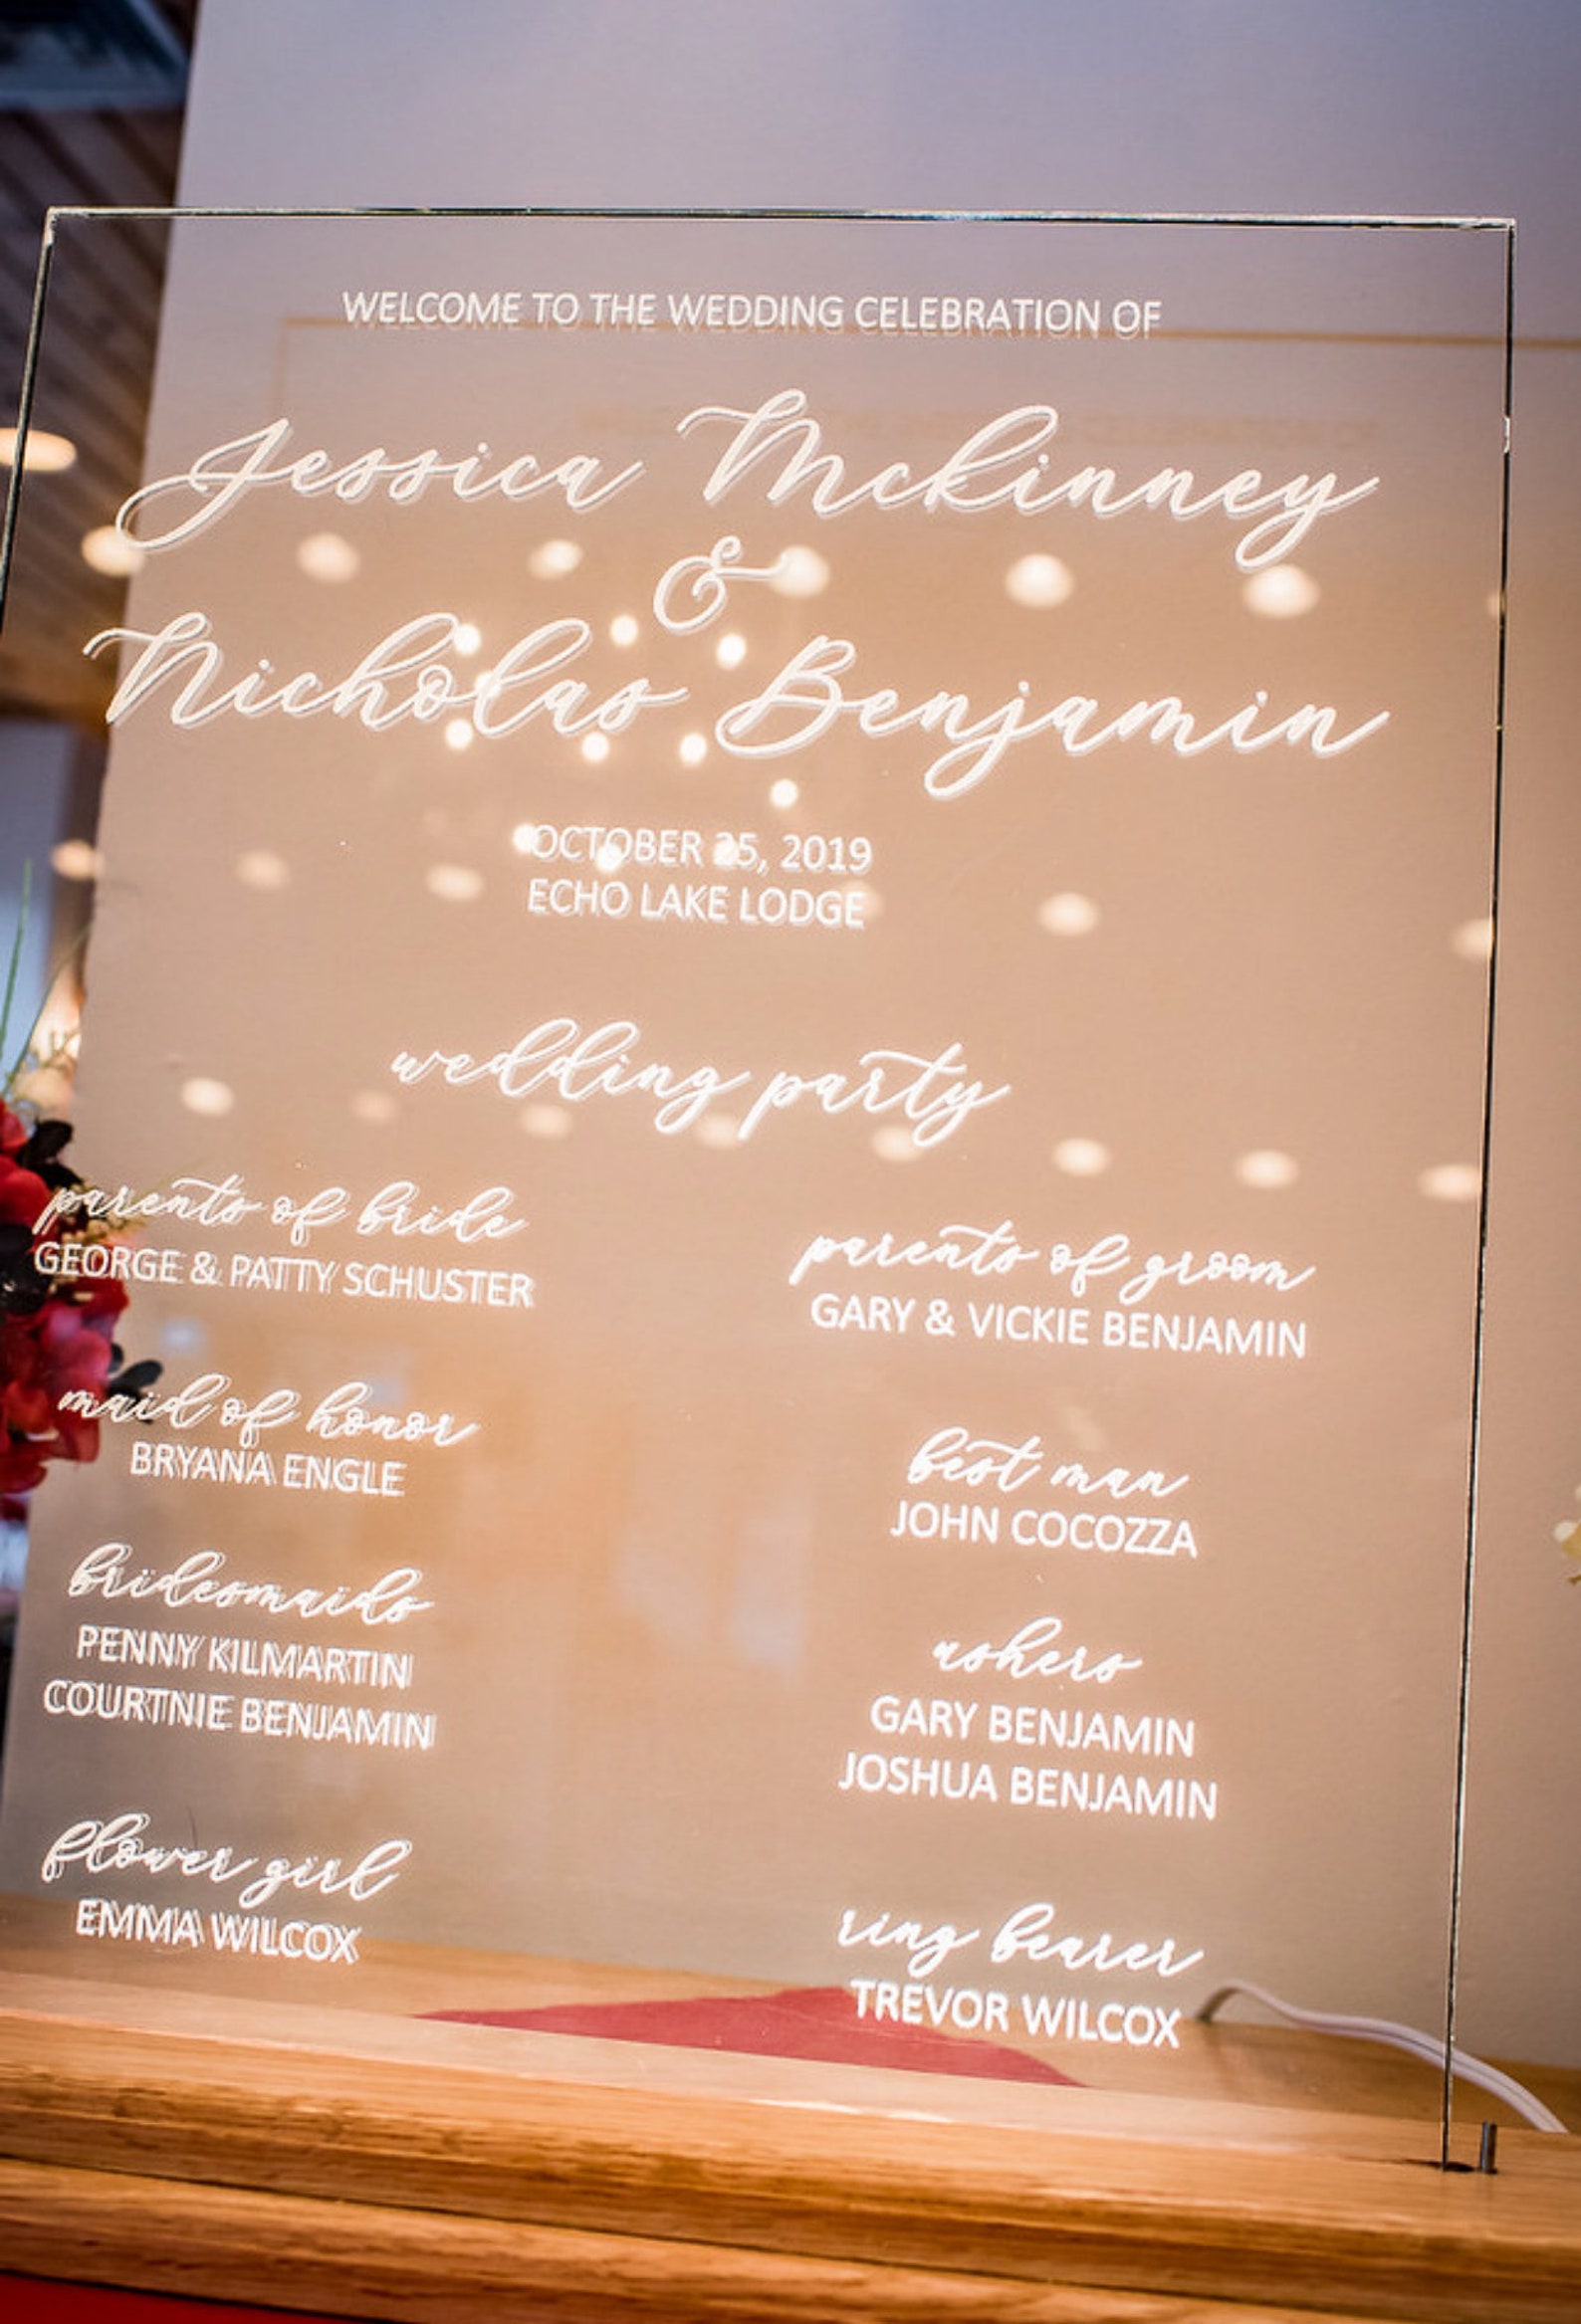 WELCOME TO THE WEDDING CELEBRATION OF
Jessica Mckinney
&
Nicholas Benjamin
OCTOBER 25, 2019
ECHO LAKE LODGE
wedding party
parents of bride
GEORGE & PATTY SCHUSTER
parents of groom
GARY & VICKIE BENJAMIN
maid of honor
BRYANA ENGLE
best man
JOHN COCOZZA
bridesmaids
PENNY KILMARTIN
COURTNIE BENJAMIN
ushers
GARY BENJAMIN
JOSHUA BENJAMIN
flower girl
EMMA WILCOX
ring bearer
TREVOR WILCOX